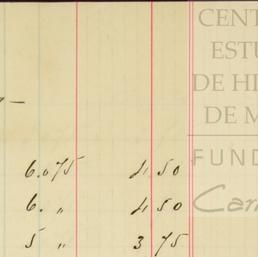 CENT
ESTU
DE HI
DE M
FUND
Car
6.075 4.50
6. „ 4.50
5 „ 3 75